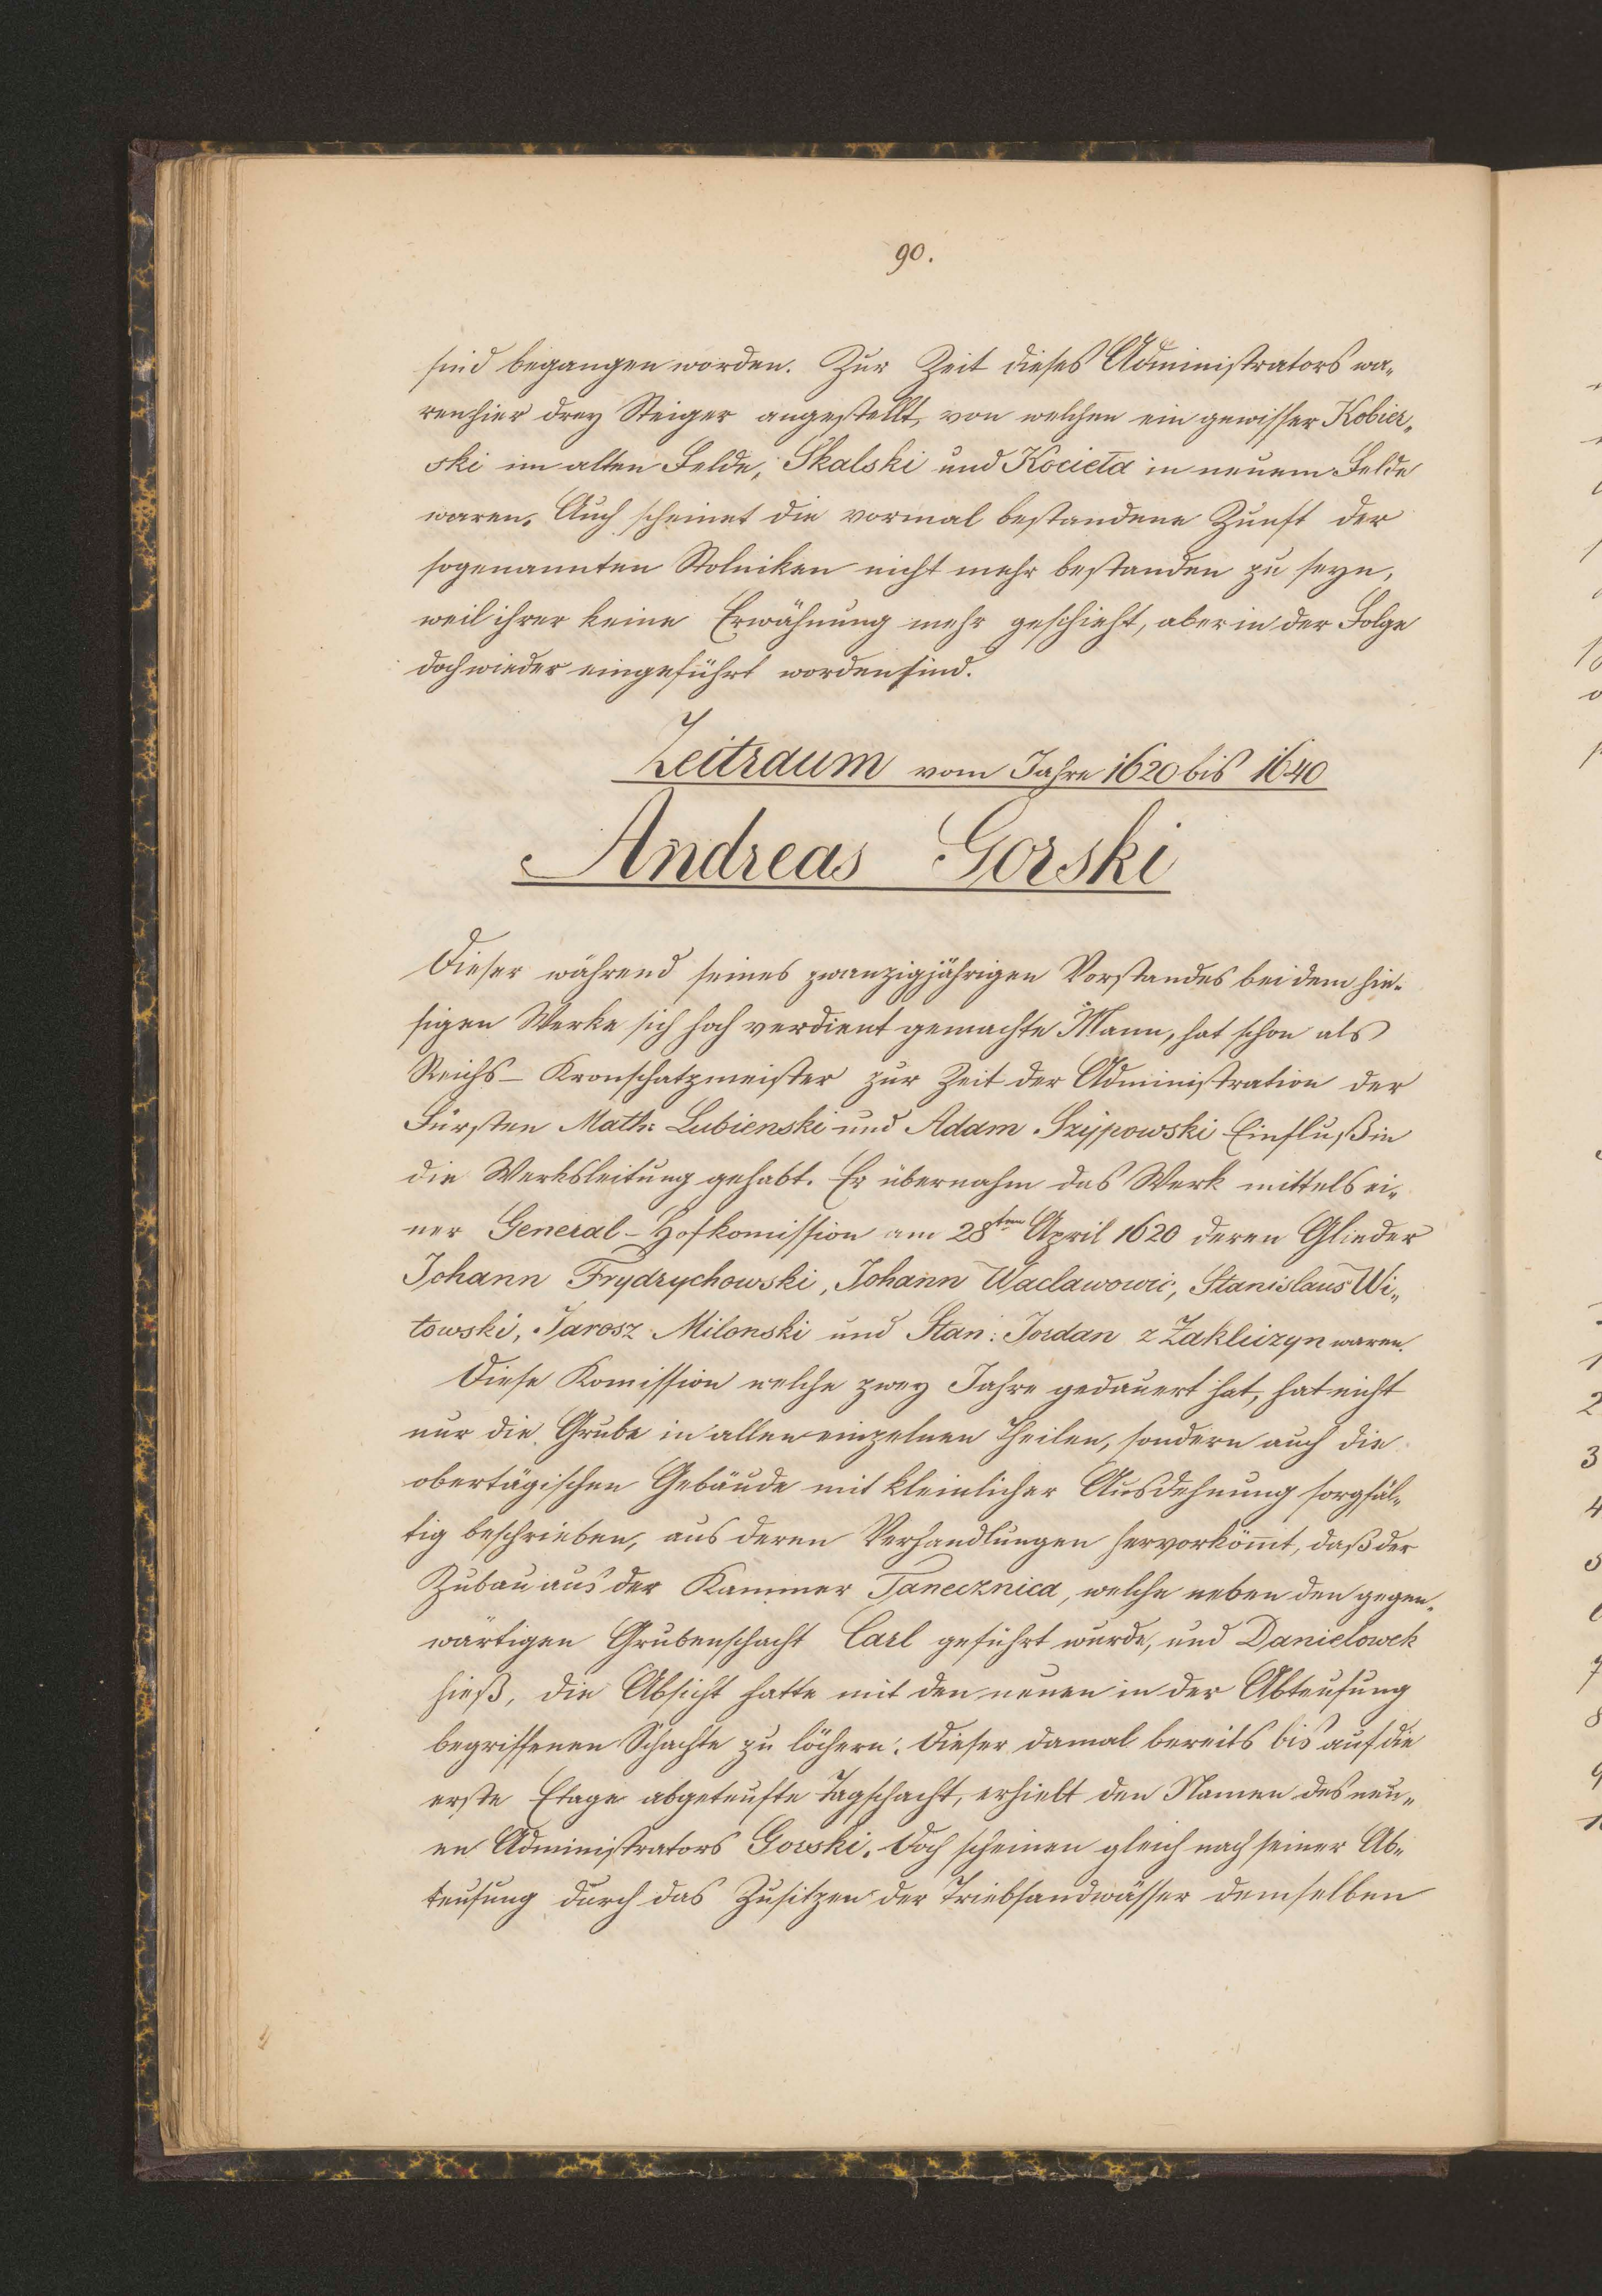 90.
sind begangen worden. Zur Zeit dieses Administrators wa„
ren hier drey Steiger angestellt, von welchen ein gewisser Kobier„
ski im alten Felde, Skalski und Kocieta in neuem Felde
waren. Auch scheinet die vormal bestandene Zunft der
sogenannten Stolniken nicht mehr bestanden zu seyn,
weil ihrer keine Erwähnung mehr geschieht, aber in der Folge
doch wieder eingeführt worden sind.
Zeitraum vom Jahre 1620 bis 1640
Andreas Gorski
Dieser während seines zwanzigjährigen Vorstandes bei dem hie-
sigen Werke sich hoch verdient gemachte Mann, hat schon als
Reichs- Kronschatzmeister zur Zeit der Administration der
Fürsten Math: Lubienski und Adam Szypowski Einfluß in
die Werksleitung gehabt. Er übernahm das Werk mittels ei„
ner General-Hofkomission am 28ten April 1620 deren Glieder
Johann Frydrychowski, Johann Waclawowic, Stanislaus Wi„
towski, Jarosz Milonski und Stan: Jordan z Zakliczyn waren.
Diese Komission welche zwey Jahre gedauert hat, hat nicht
nur die Grube in allen einzelnen Theilen, sondern auch die
obertägischen Gebäude mit kleinlicher Ausdehnung sorgfäl„
tig beschrieben, aus deren Verhandlungen hervorköm̄t, daß der
Zubau aus der Kammer Tanecznica, welche neben den gegen„
wärtigen Grubenschacht Carl geführt wurde, und Danielowek
hieß, die Absicht hatte mit den neuen in der Abteufung
begriffenen Schachte zu löchern. Dieser damal bereits bis auf die
erste Etage abgeteufte Tagschacht, erhielt den Namen des neu„
en Administrators Gorski. Doch scheinen gleich nach seiner Ab„
teufung durch das Zusitzen der Triebsandwässer demselben